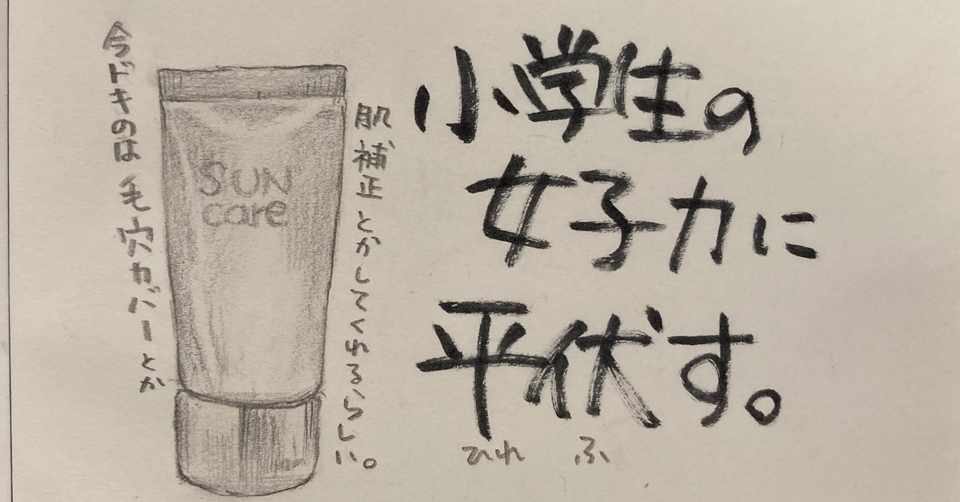 今ドキのは毛穴カバーとか
SUN
care
肌補正とかしてくれるらしい。
小学生の
女子力に
平伏す。
ひれ ふ